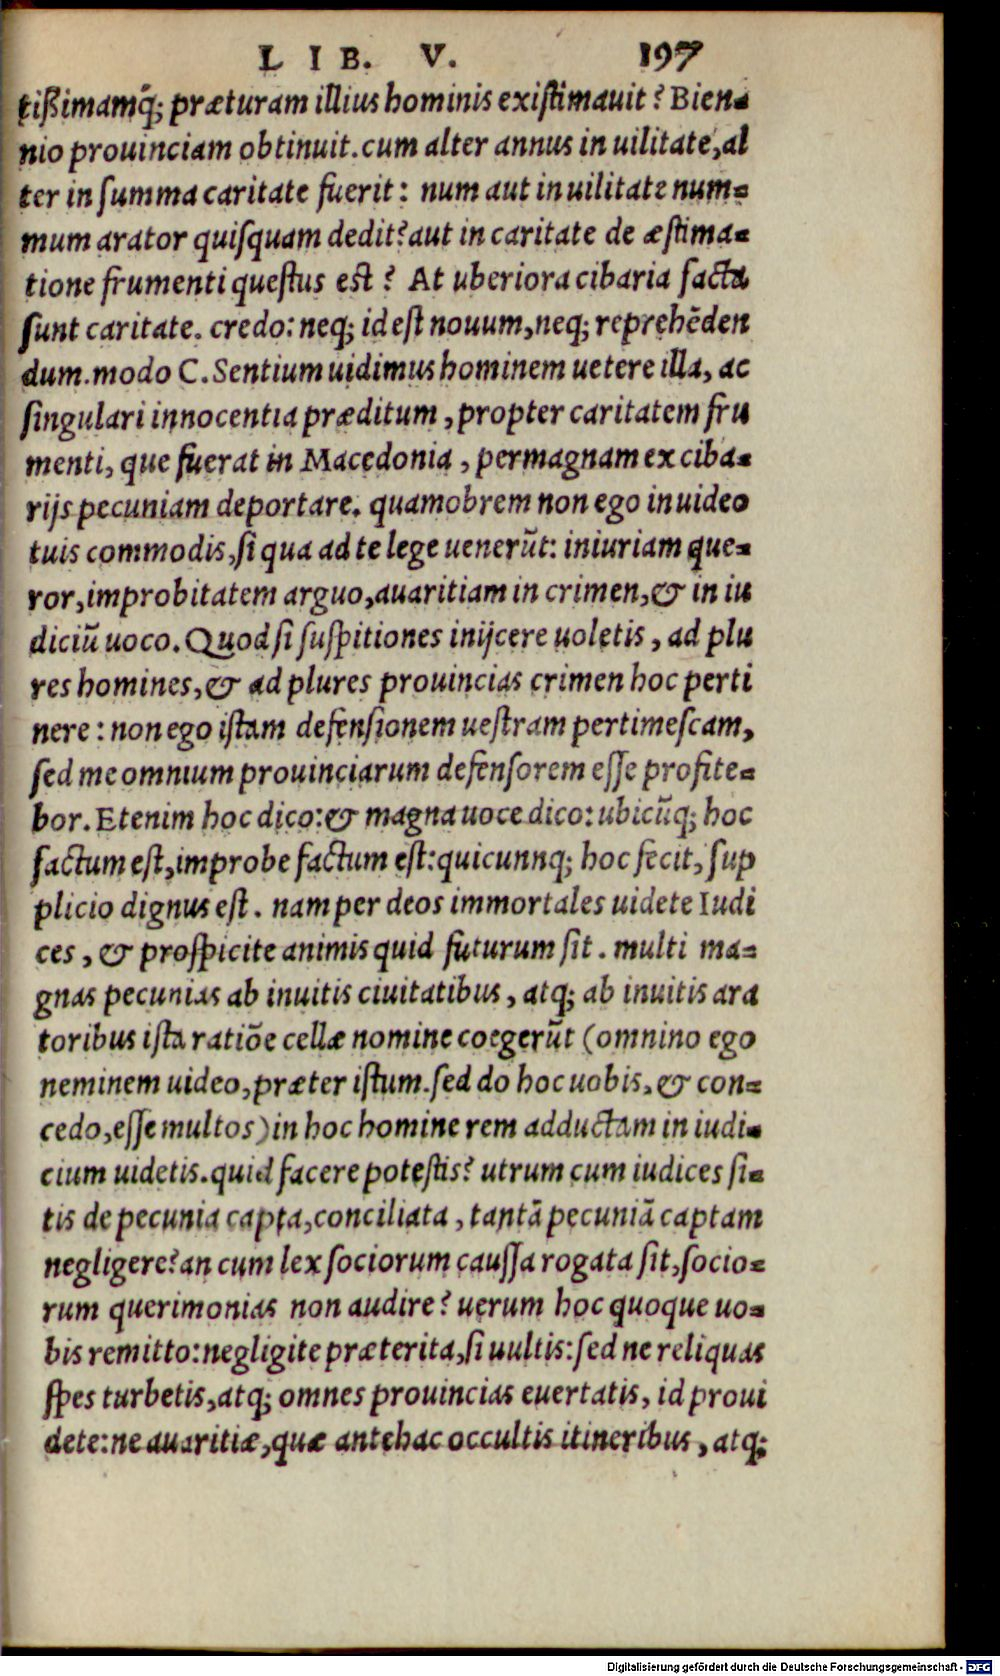 LIB. V. 197
tißimamq́; præturam illius hominis existimauit? Bien-
nio prouinciam obtinuit. cum alter annus in uilitate, al
ter in summa caritate fuerit: num aut in uilitate num-
mum arator quisquam dedit? aut in caritate de æstima-
tione frumenti questus est? At uberiora cibaria facta
sunt caritate. credo: neq; id est nouum, neq; reprehēden
dum. modo C. Sentium uidimus hominem uetere illa, ac
singulari innocentia præditum, propter caritatem fru
menti, que fuerat in Macedonia, permagnam ex ciba-
rijs pecuniam deportare. quamobrem non ego inuideo
tuis commodis, si qua ad te lege uenerūt: iniuriam que-
ror, improbitatem arguo, auaritiam in crimen, & in iu
diciū uoco. Quod si suspitiones inijcere uoletis, ad plu
res homines, & ad plures prouincias crimen hoc perti
nere: non ego istam defensionem uestram pertimescam,
sed me omnium prouinciarum defensorem esse profite-
bor. Etenim hoc dico: & magna uoce dico: ubicūq; hoc
factum est, improbe factum est: quicunnq; hoc fecit, sup
plicio dignus est. nam per deos immortales uidete Iudi
ces, & prospicite animis quid futurum sit. multi ma-
gnas pecunias ab inuitis ciuitatibus, atq; ab inuitis ara
toribus ista ratiōe cellæ nomine coegerūt (omnino ego
neminem uideo, præter istum. sed do hoc uobis, & con-
cedo, esse multos) in hoc homine rem adductam in iudi-
cium uidetis. quid facere potestis? utrum cum iudices si-
tis de pecunia capta, conciliata, tantā pecuniā captam
negligere? an cum lex sociorum caussa rogata sit, socio-
rum querimonias non audire? uerum hoc quoque uo-
bis remitto: negligite præterita, si uultis: sed ne reliquas
spes turbetis, atq; omnes prouincias euertatis, id proui
dete: ne auaritiæ, quæ antehac occultis itineribus, atq;
Digitalisierung gefördert durch die Deutsche Forschungsgemeinschaft - DFG